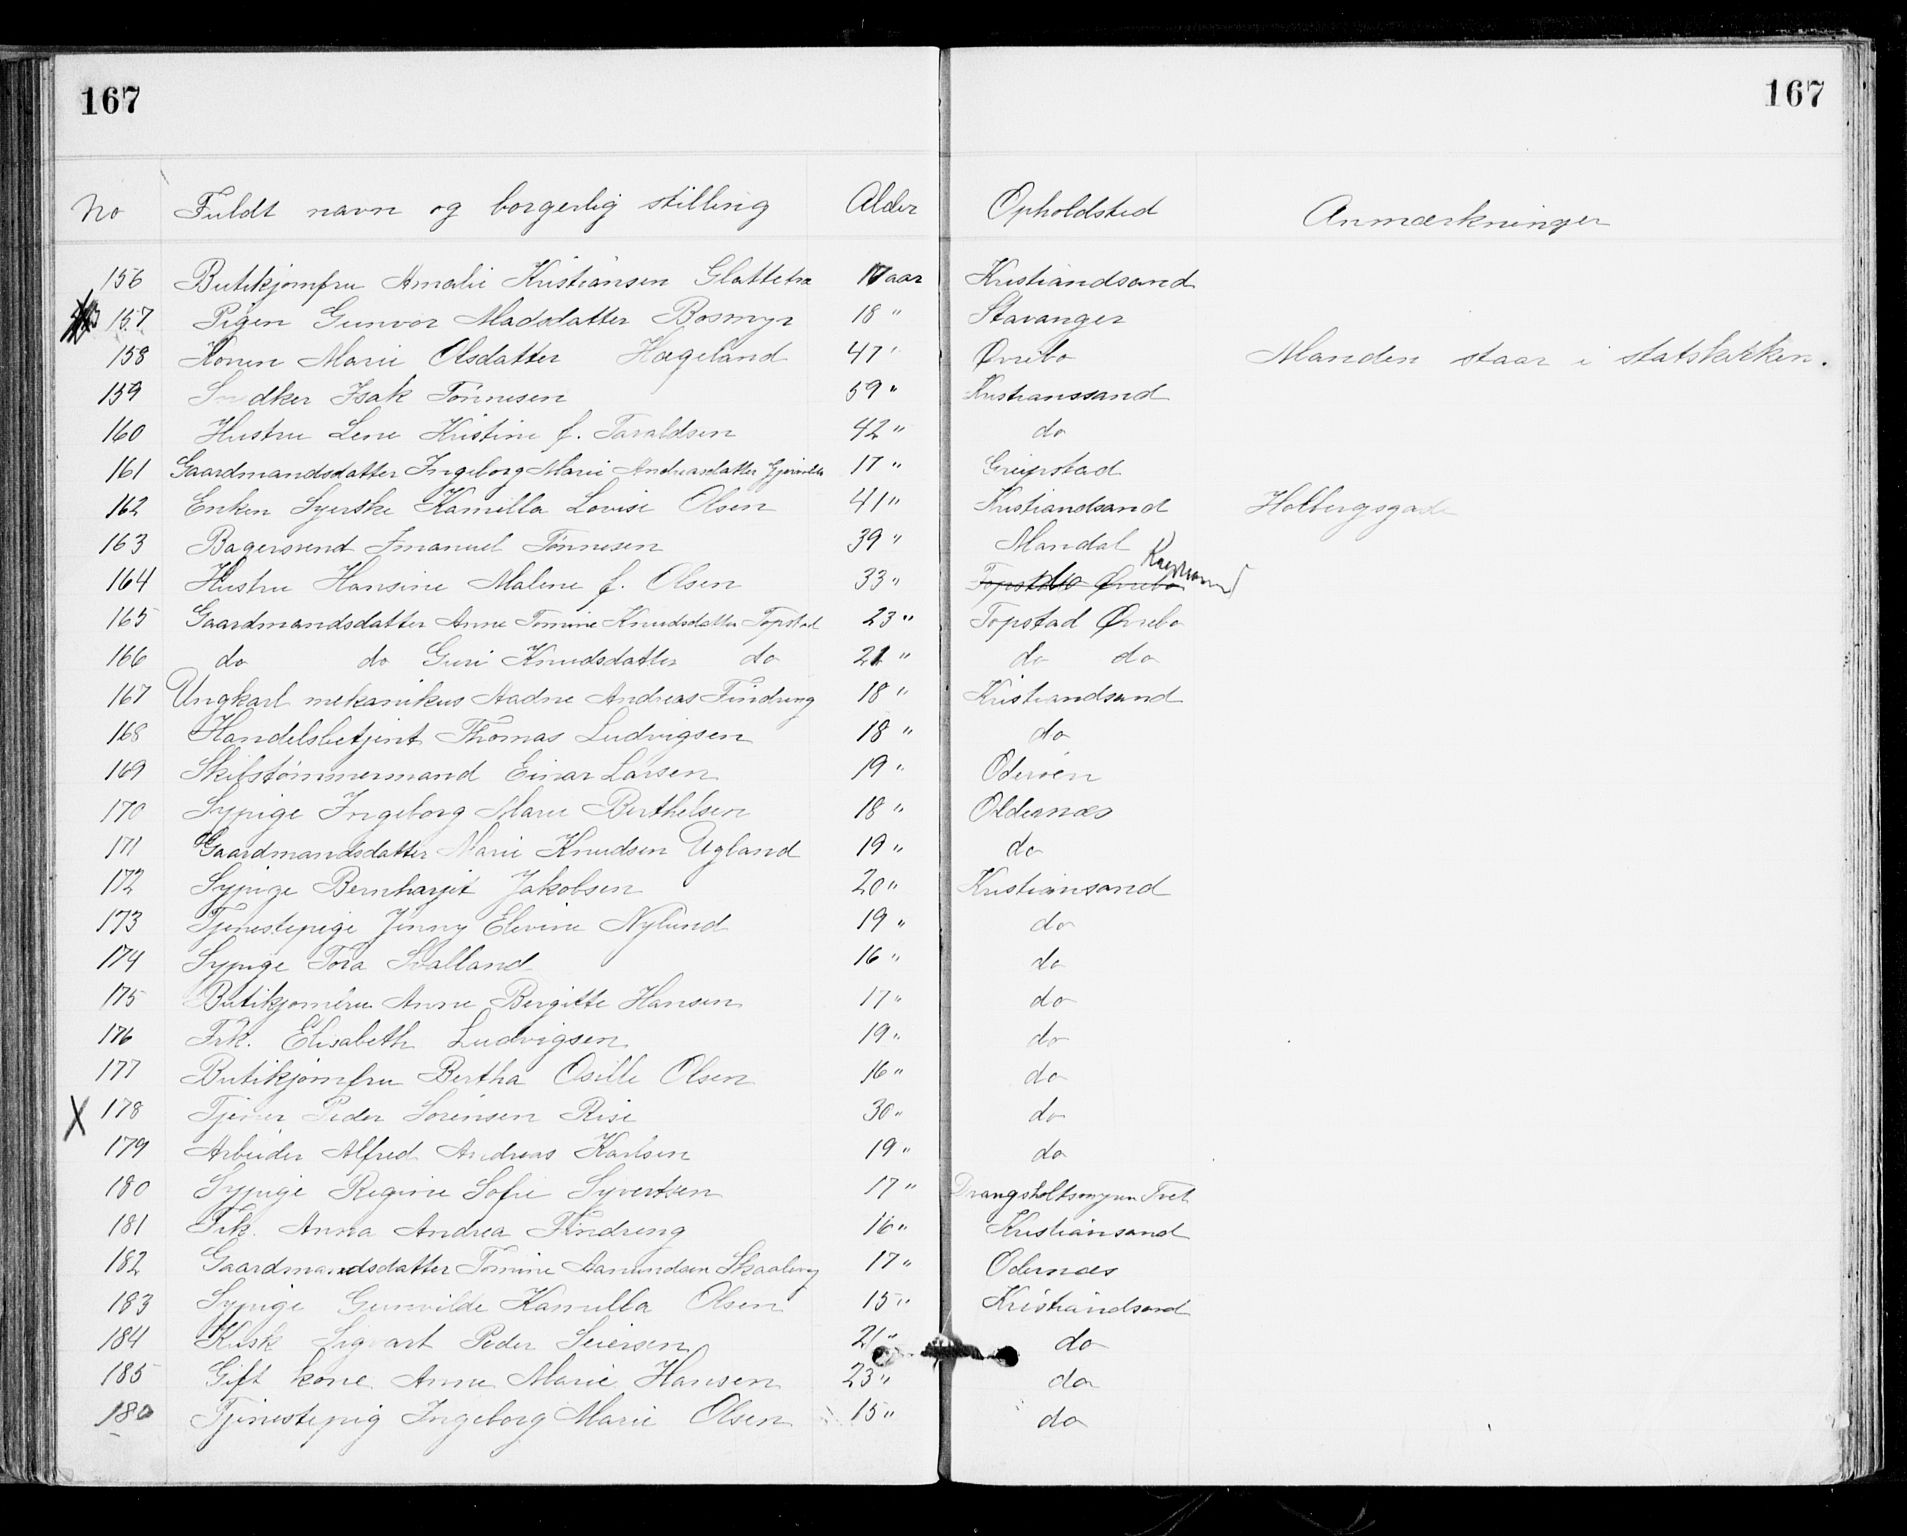 167 167
No Fuldt navn og borgerlig stilling Alder Opholdsted Anmærkninger
156 Butikjomfru Amalie Kristiansen Glattetræ 17 aar Kristiandsand
157 Pigen Gunvor Madsdatter Bosmyr 18 " Stavanger
158 Konen Marie Olsdatter Hægeland 47 " Øvrebo Manden staar i statskirken.
159 Isak Tønnesen 59 " Kristianssand
160 Hustru Lene Kristine f. Taraldsen 42 " do
161 Gaardmandsdatter Ingeborg Marie Andreasdatter 17 " Greipstad
162 Enken Syerske Kamilla Lovise Olsen 41 " Kristiandsand Holbergsgade
163 Bagersvend Imanuel Tønnesen 39 " Mandal
164 Hustru Hansine Malene f. Olsen 33 "
165 Gaardmandsdatter Anne Tomine Knudsdatter Topstad 23 " Topstad Øvrebo
166 do do Guri Knudsdatter do 21 " do do
167 Ungkarl mekanikus Aadne Andreas Findreng 18 " Kristiandsand
168 Handelsbetjent Thomas Ludvigsen 18 " do
169 Skibstømmermand Einar Larsen 19 " Oderøen
170 Sypige Ingeborg Marie Berthelsen 18 " Oddernæs
171 Gaardmandsdatter Marie Knudsen Ugland 19 " do
172 Sypige Bernharjit Jakobsen 20 " Kristiansand
173 Tjenestepige Jenny Elevine Nylund 19 " do
174 Sypige Tora Svalland 16 " do
175 Butikjomfru Anne Bergitte Hansen 17 " do
176 Frk. Elisabeth Ludvigsen 19 " do
177 Butikjomfru Bertha Osille Olsen 16 " do
X 178 Tjener Peder Sørensen Rise 30 " do
179 Arbeider Alfred Andreas Karlsen 19 " do
180 Sypige Regine Sofie Syvertsen 17 " Drangsholtsmyren Tvet
181 Frk. Anna Andrea Findreng 16 " Kristiansand
182 Gaardmandsdatter Tomine Aanundsen Skaalevig 17 " Odernæs
183 Sypige Gunvilde Kamilla Olsen 15 " Kristiandsand
184 Kusk Sigvart Peder Seiersen 21 " do
185 Gift kone Anne Marie Hansen 23 " do
186 Tjenestepig Ingeborg Marie Olsen 15 " do